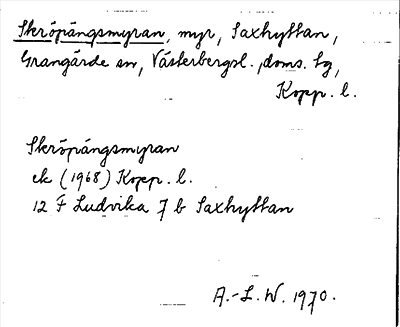 Skröpängsmyran, myr, Saxhyttan,
Grangärde sn, Västerbergsl. doms. tg,
Kopp. l.
Skröpängsmyran
ek (1968) Kopp. l.
12 F Ludvika 7 b Saxhyttan
A.-L. W. 1970.